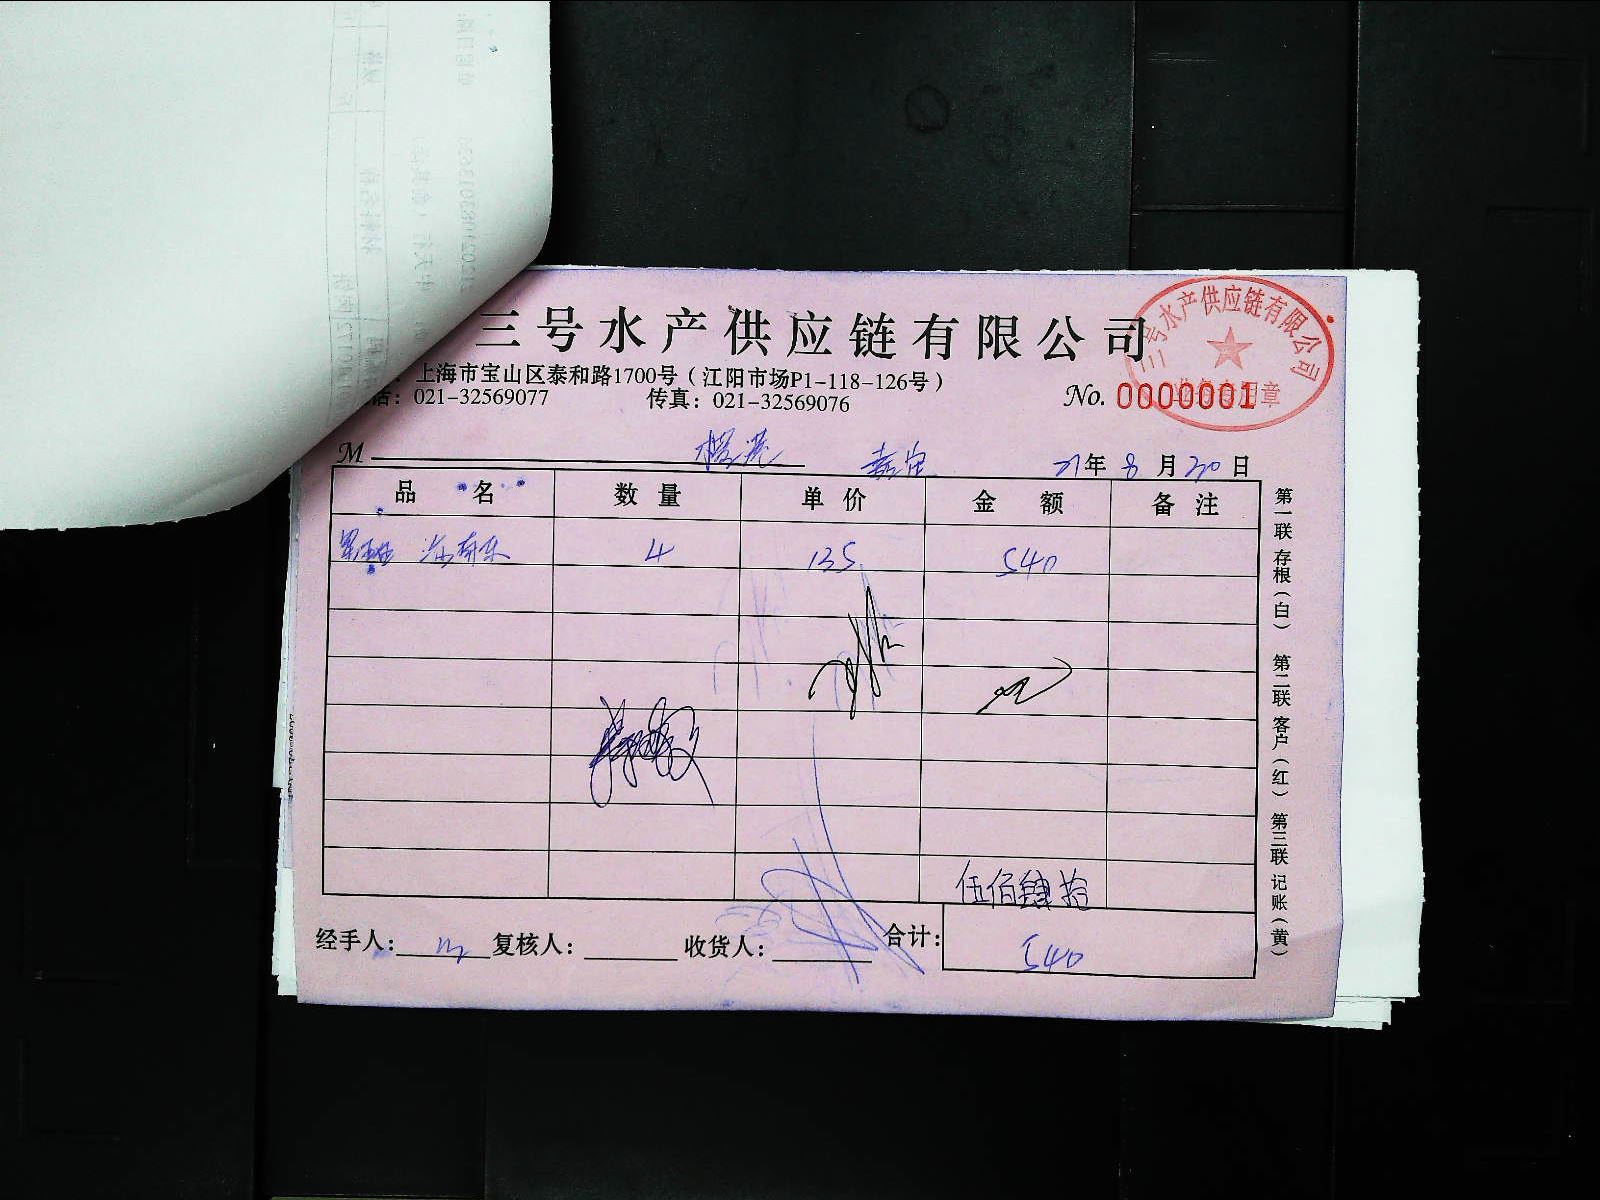 三号水产供应链有限公司
上海市宝山区泰和路1700号（江阳市场P1-118-126号）
话：021-32569077 传真：021-32569076
No. 0000001
三号水产供应链有限公司
M
21年 8月30日
品名 数量 单价 金额 备注
4 135 540
伍佰肆拾
经手人： 复核人： 收货人： 合计： 540
第一联 存根（白） 第二联 客户（红） 第三联 记账（黄）